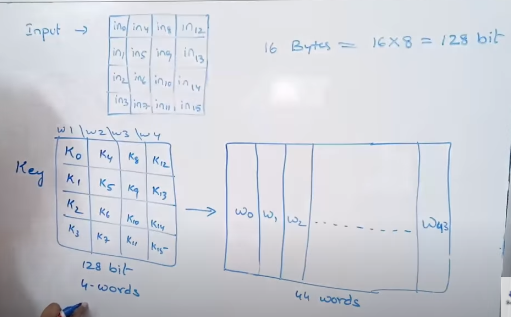 Input → in0 in4 in8 in12
in1 in5 in9 in13
in2 in6 in10 in14
in3 in7 in11 in15
16 Bytes = 16×8 = 128 bit
W1 W2 W3 W4
Key
K0 K4 K8 K12
K1 K5 K9 K13
K2 K6 K10 K14
K3 K7 K11 K15
128 bit
4-words
→
W0 W1 W2 ........... W43
44 words